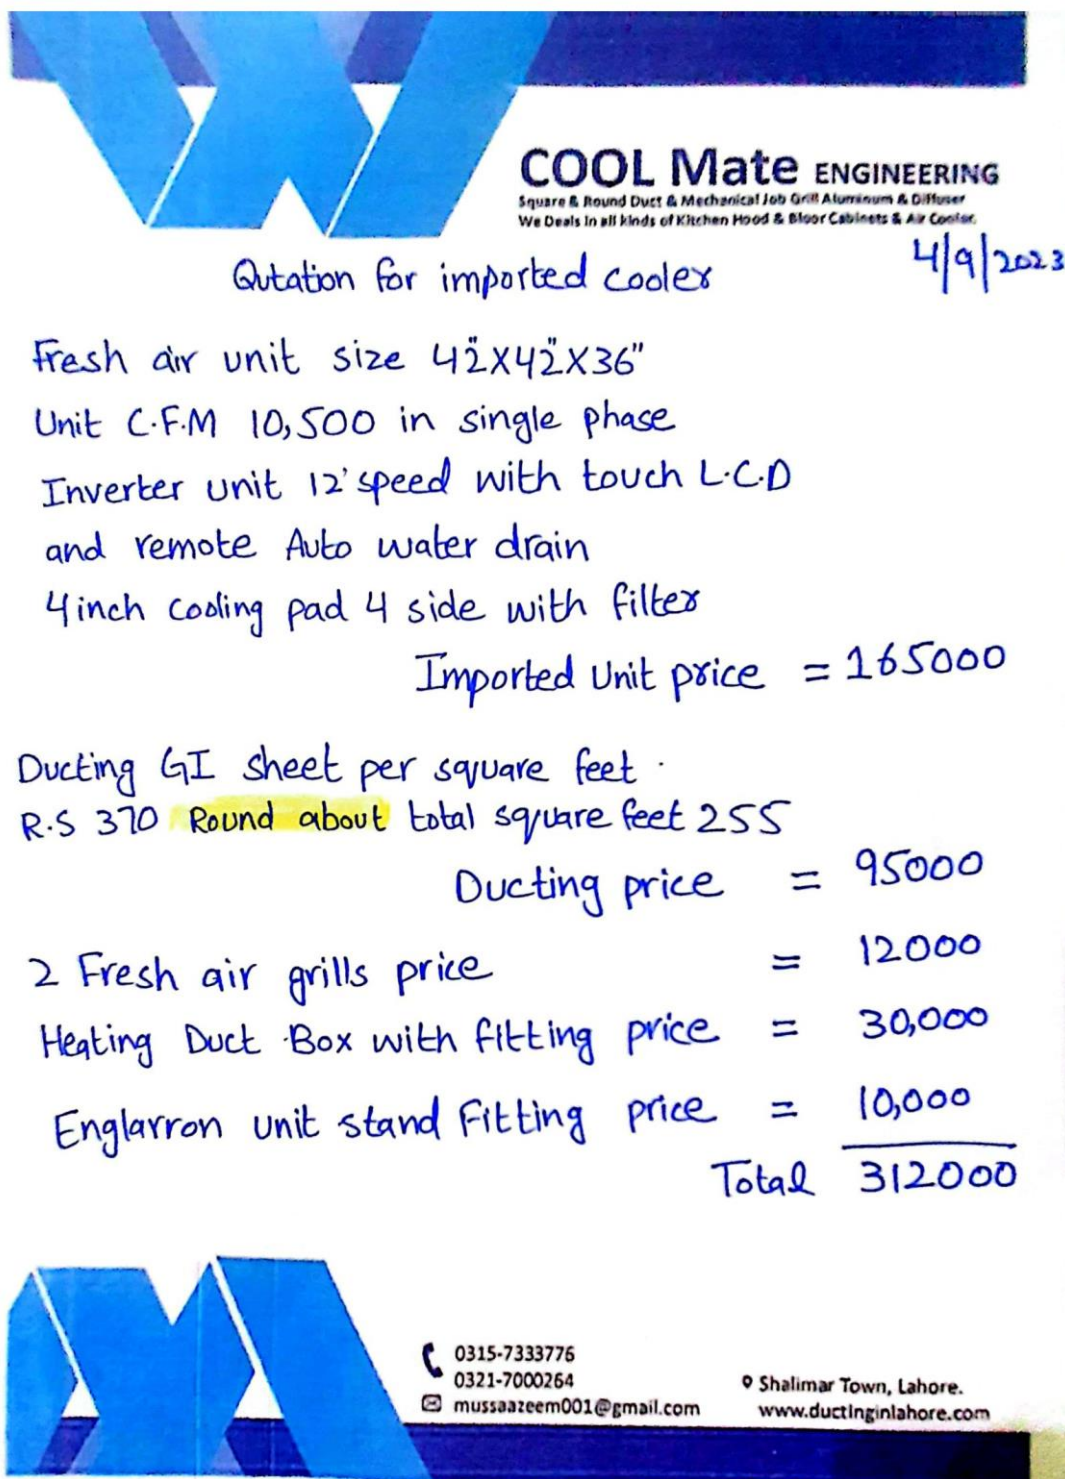 COOL Mate ENGINEERING
Square & Round Duct & Mechanical Job Grill Aluminum & Diffuser
We Deals in all kinds of Kitchen Hood & Bloor Cabinets & Air Cooler.
4/9/2023
Qutation for imported cooler
Fresh air unit size 42"X42"X36"
Unit C.F.M 10,500 in single phase
Inverter unit 12' speed with touch L.C.D
and remote Auto water drain
4 inch cooling pad 4 side with filter
Imported Unit price = 165000
Ducting GI sheet per square feet .
R.S 370 Round about total square feet 255
Ducting price = 95000
2 Fresh air grills price = 12000
Heating Duct Box with fitting price = 30,000
Englarron unit stand Fitting price = 10,000
Total 312000
0315-7333776
0321-7000264
mussaazeem001@gmail.com
Shalimar Town, Lahore.
www.ductinginlahore.com